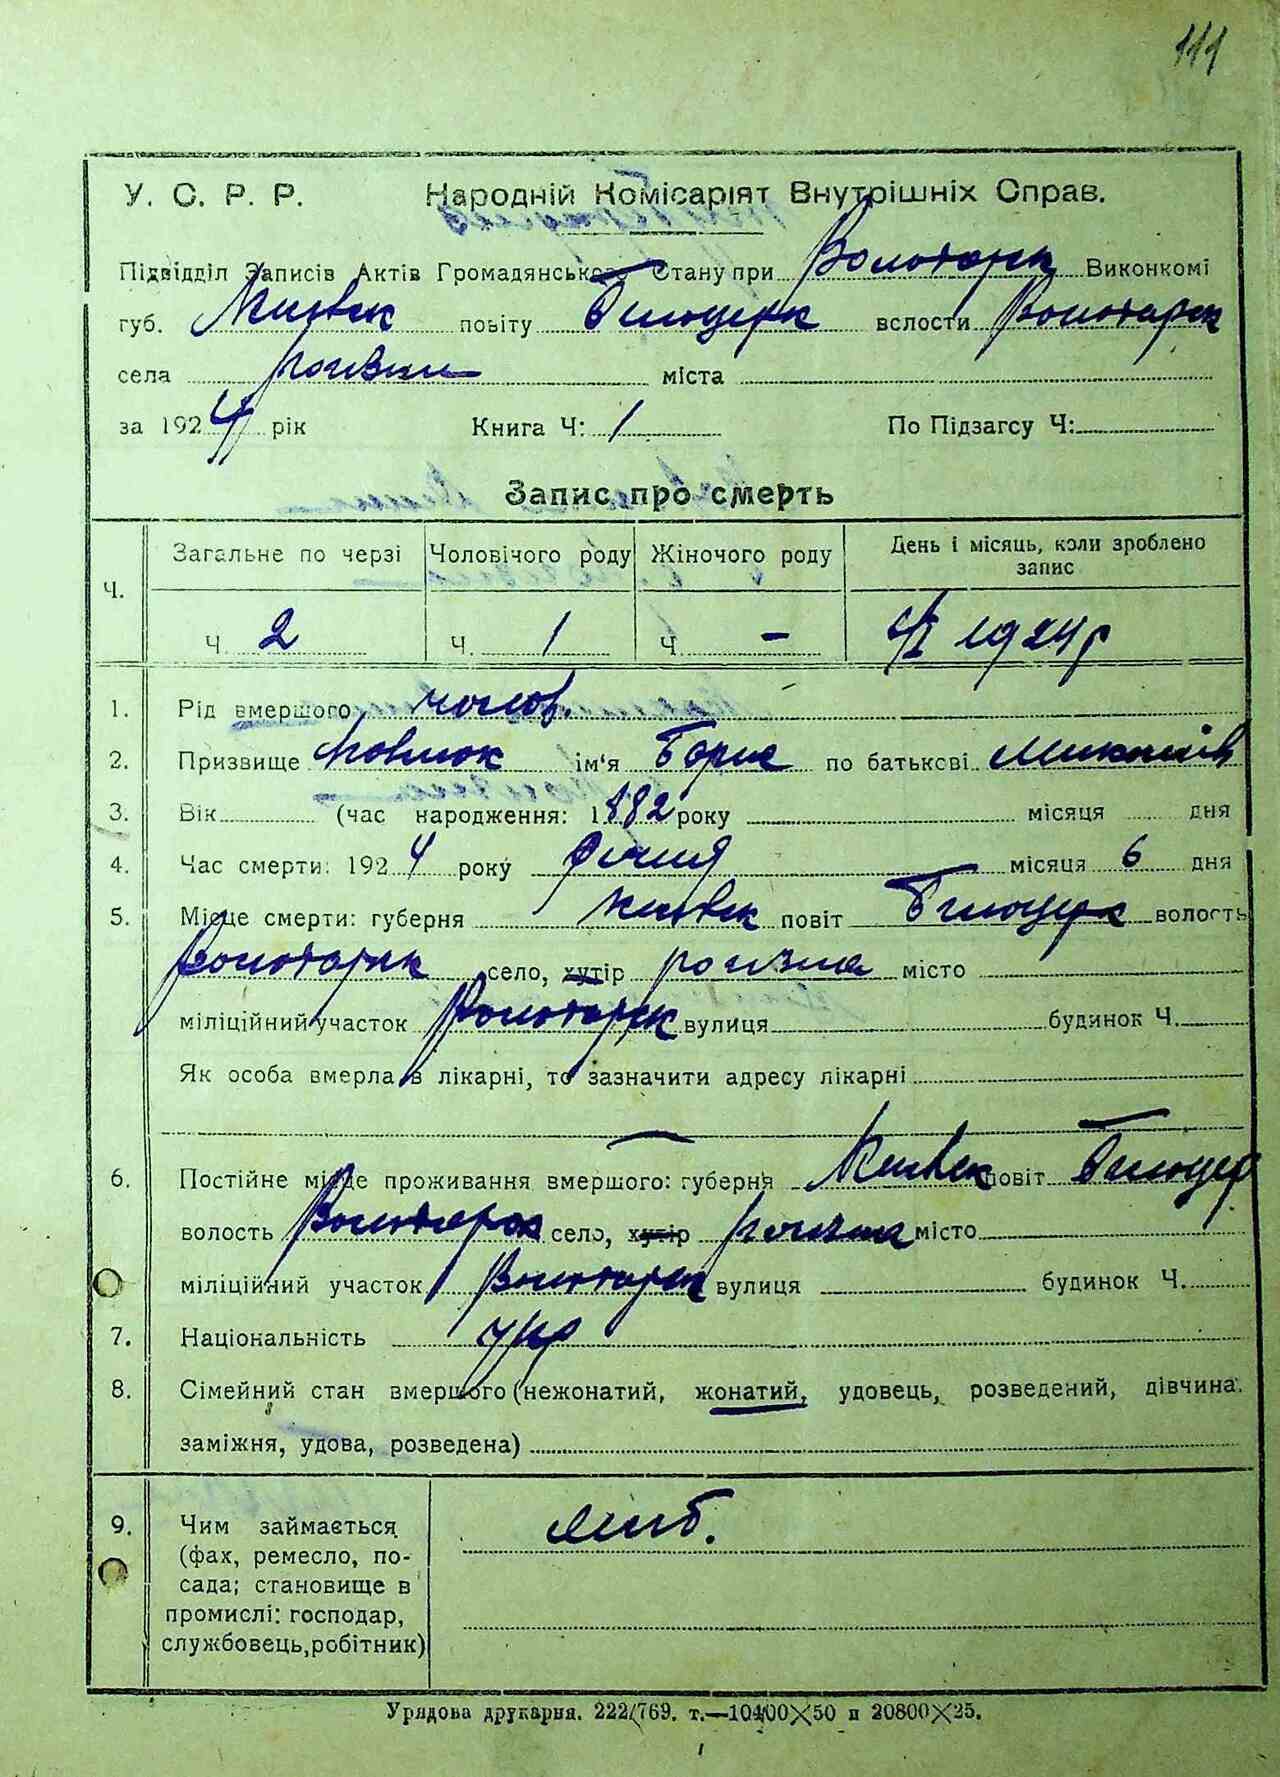 111
У. С. Р. Р. Народній Комісаріят Внутрішніх Справ.
Підвідділ Записів Актів Громадянського Стану при Володарск Виконкомі
губ. Київск повіту Білоцерк вслости Володарск
села Рогізни міста
за 1924 рік Книга Ч: 1 По Підзагсу Ч:
Запис про смерть
Ч. Загальне по черзі Чоловічого роду Жіночого роду День і місяць, коли зроблено запис
Ч. 2 Ч. 1 Ч. - 1924 р
1. Рід вмершого чолов.
2. Призвище ім'я Борис по батькові Миколаїв
3. Вік (час народження: 1882 року місяця дня
4. Час смерти: 1924 року Січня місяця 6 дня
5. Місце смерти: губерня Київск повіт Білоцерк волость
Володарск село, хутір Рогізна місто
міліційний участок Володарск вулиця будинок Ч.
Як особа вмерла в лікарні, то зазначити адресу лікарні
6. Постійне місце проживання вмершого: губерня Київск повіт Білоцер
волость Володарск село, хутір Рогізна місто
міліційний участок Володарск вулиця будинок Ч.
7. Національність укр
8. Сімейний стан вмершого (нежонатий, жонатий, удовець, розведений, дівчина.
заміжня, удова, розведена)
9. Чим займається хліб.
(фах, ремесло, по-
сада; становище в
промислі: господар,
службовець, робітник)
Урядова друкарня. 222/769. т.—10400×50 и 20800×25.